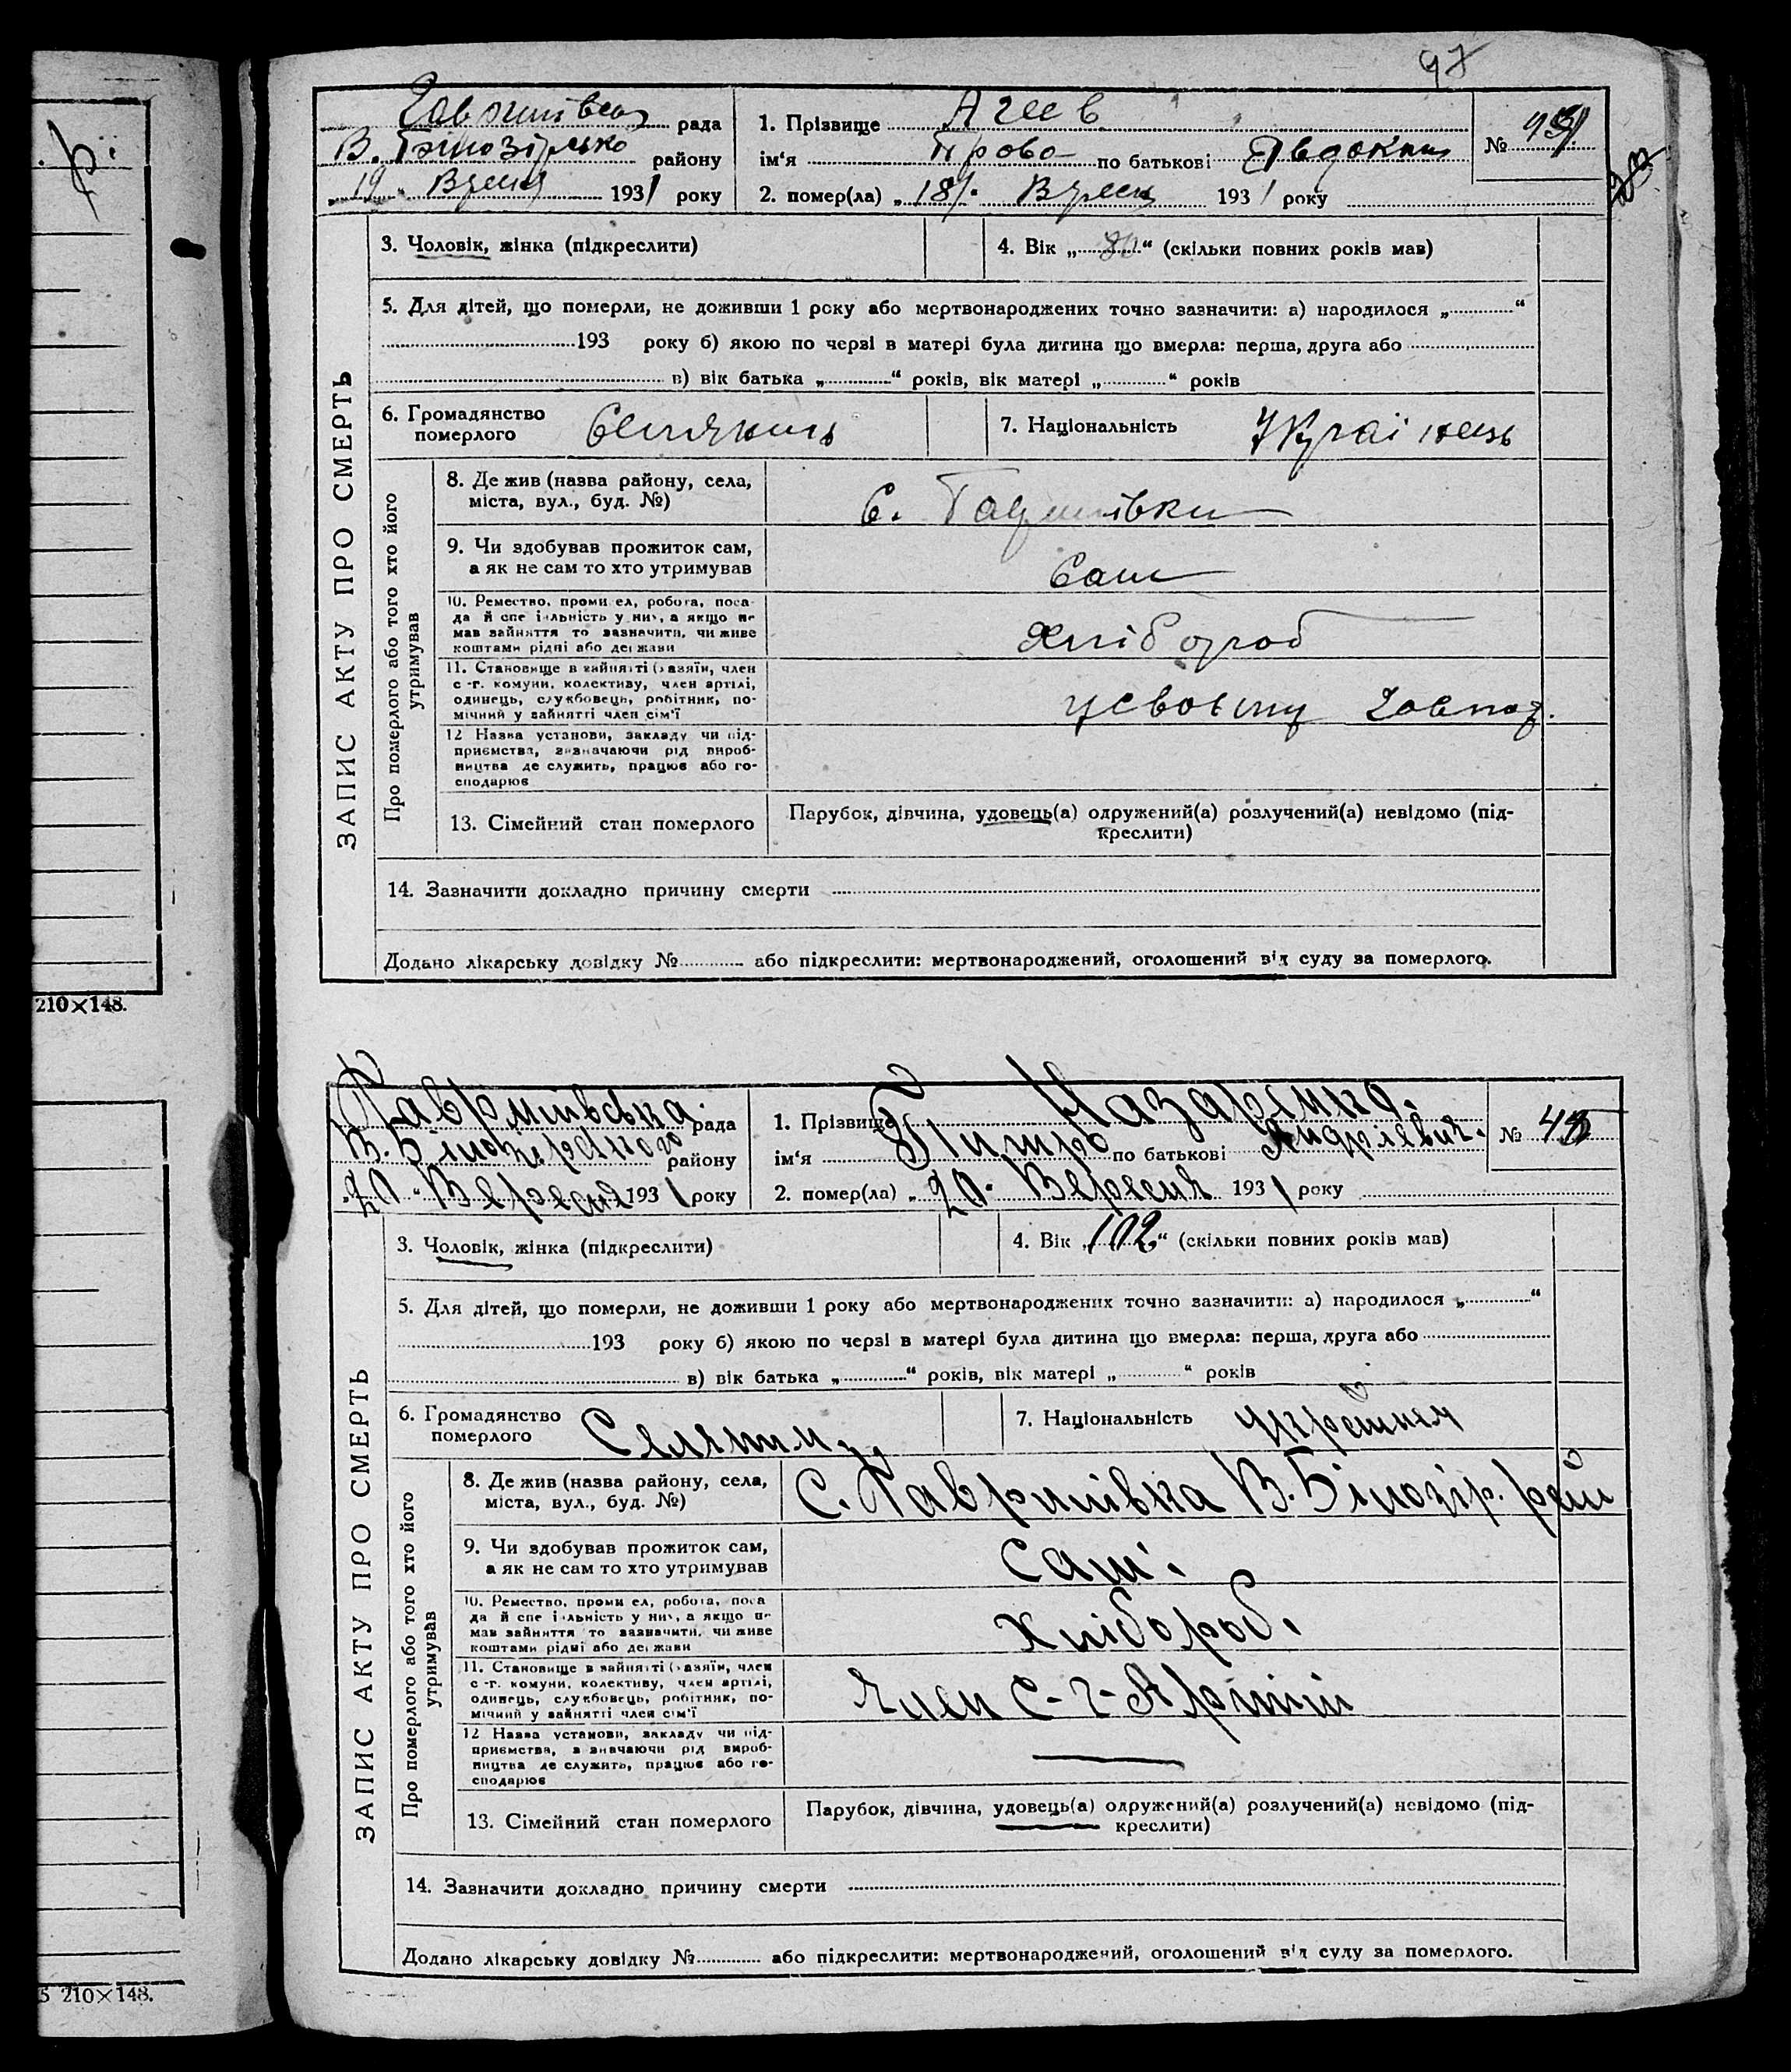 97
рада
В. Білозірсько району
19 Вресня 1931 року
1. Прізвище Агеев
ім'я Прово по батькові Явдоким
2. помер(ла) „18/. Вресня 1931 року
№
ЗАПИС АКТУ ПРО СМЕРТЬ
3. Чоловік, жінка (підкреслити)
4. Вік „80“ (скільки повних років мав)
5. Для дітей, що померли, не доживши 1 року або мертвонароджених точно зазначити: а) народилося „ “
193 року б) якою по черзі в матері була дитина що вмерла: перша, друга або
в) вік батька „ “ років, вік матері „ “ років
6. Громадянство померлого Селянинь
7. Національність Українець
Про померлого або того хто його утримував
8. Де жив (назва району, села,
міста, вул., буд. №)
с. Гаврилівки
9. Чи здобував прожиток сам,
а як не сам то хто утримував
Сам
10. Ремество, проми ел, робота, поса-
да й спе іальність у них, а якщо не
мав зайняття то зазначити, чи живе
коштами рідні або держави
Хлібороб
11. Становище в зайнятті (хазяїн, член
с-г. комуни, колективу, член артілі,
одинець, службовець, робітник, по-
мічний у зайнятті член сім'ї
усвоєму господ.
12 Назва установи, закладу чи під-
приємства, зазначаючи рід вироб-
ництва де служить, працює або го-
сподарює
13. Сімейний стан померлого
Парубок, дівчина, удовець(а) одружений(а) розлучений(а) невідомо (під-
креслити)
14. Зазначити докладно причину смерти
Додано лікарську довідку № або підкреслити: мертвонароджений, оголошений від суду за померлого.
210×148.
Гаврилівська рада
В. Білозірського району
„20“ Вересня 1931 року
1. Прізвище Назаренко.
ім'я Питро по батькові Андрієвич.
2. помер(ла) „20. Вересня 1931 року
№
ЗАПИС АКТУ ПРО СМЕРТЬ
3. Чоловік, жінка (підкреслити)
4. Вік „102“ (скільки повних років мав)
5. Для дітей, що померли, не доживши 1 року або мертвонароджених точно зазначити: а) народилося „ “
193 року б) якою по черзі в матері була дитина що вмерла: перша, друга або
в) вік батька „ “ років, вік матері „ “ років
6. Громадянство померлого Селянин
7. Національність
Про померлого або того хто його утримував
8. Де жив (назва району, села,
міста, вул., буд. №)
С. Гаврилівка В. Білозір. рай
9. Чи здобував прожиток сам,
а як не сам то хто утримував
Сам.
10. Ремество, проми ел, робота, поса
да й спе іальність у них, а якщо не
мав зайняття то зазначити, чи живе
коштами рідні або держави
Хлібороб.
11. Становище в зайнятті (хазяїн, член
с-г. комуни, колективу, член артілі,
одинець, службовець, робітник, по-
мічний у зайнятті член сім'ї
Член С-г-Артілі
12 Назва установи, закладу чи під-
приємства, зазначаючи рід вироб-
ництва де служить, працює або го-
сподарює
13. Сімейний стан померлого
Парубок, дівчина, удовець(а) одружений(а) розлучений(а) невідомо (під-
креслити)
14. Зазначити докладно причину смерти
Додано лікарську довідку № або підкреслити: мертвонароджений, оголошений від суду за померлого.
5 210×148.